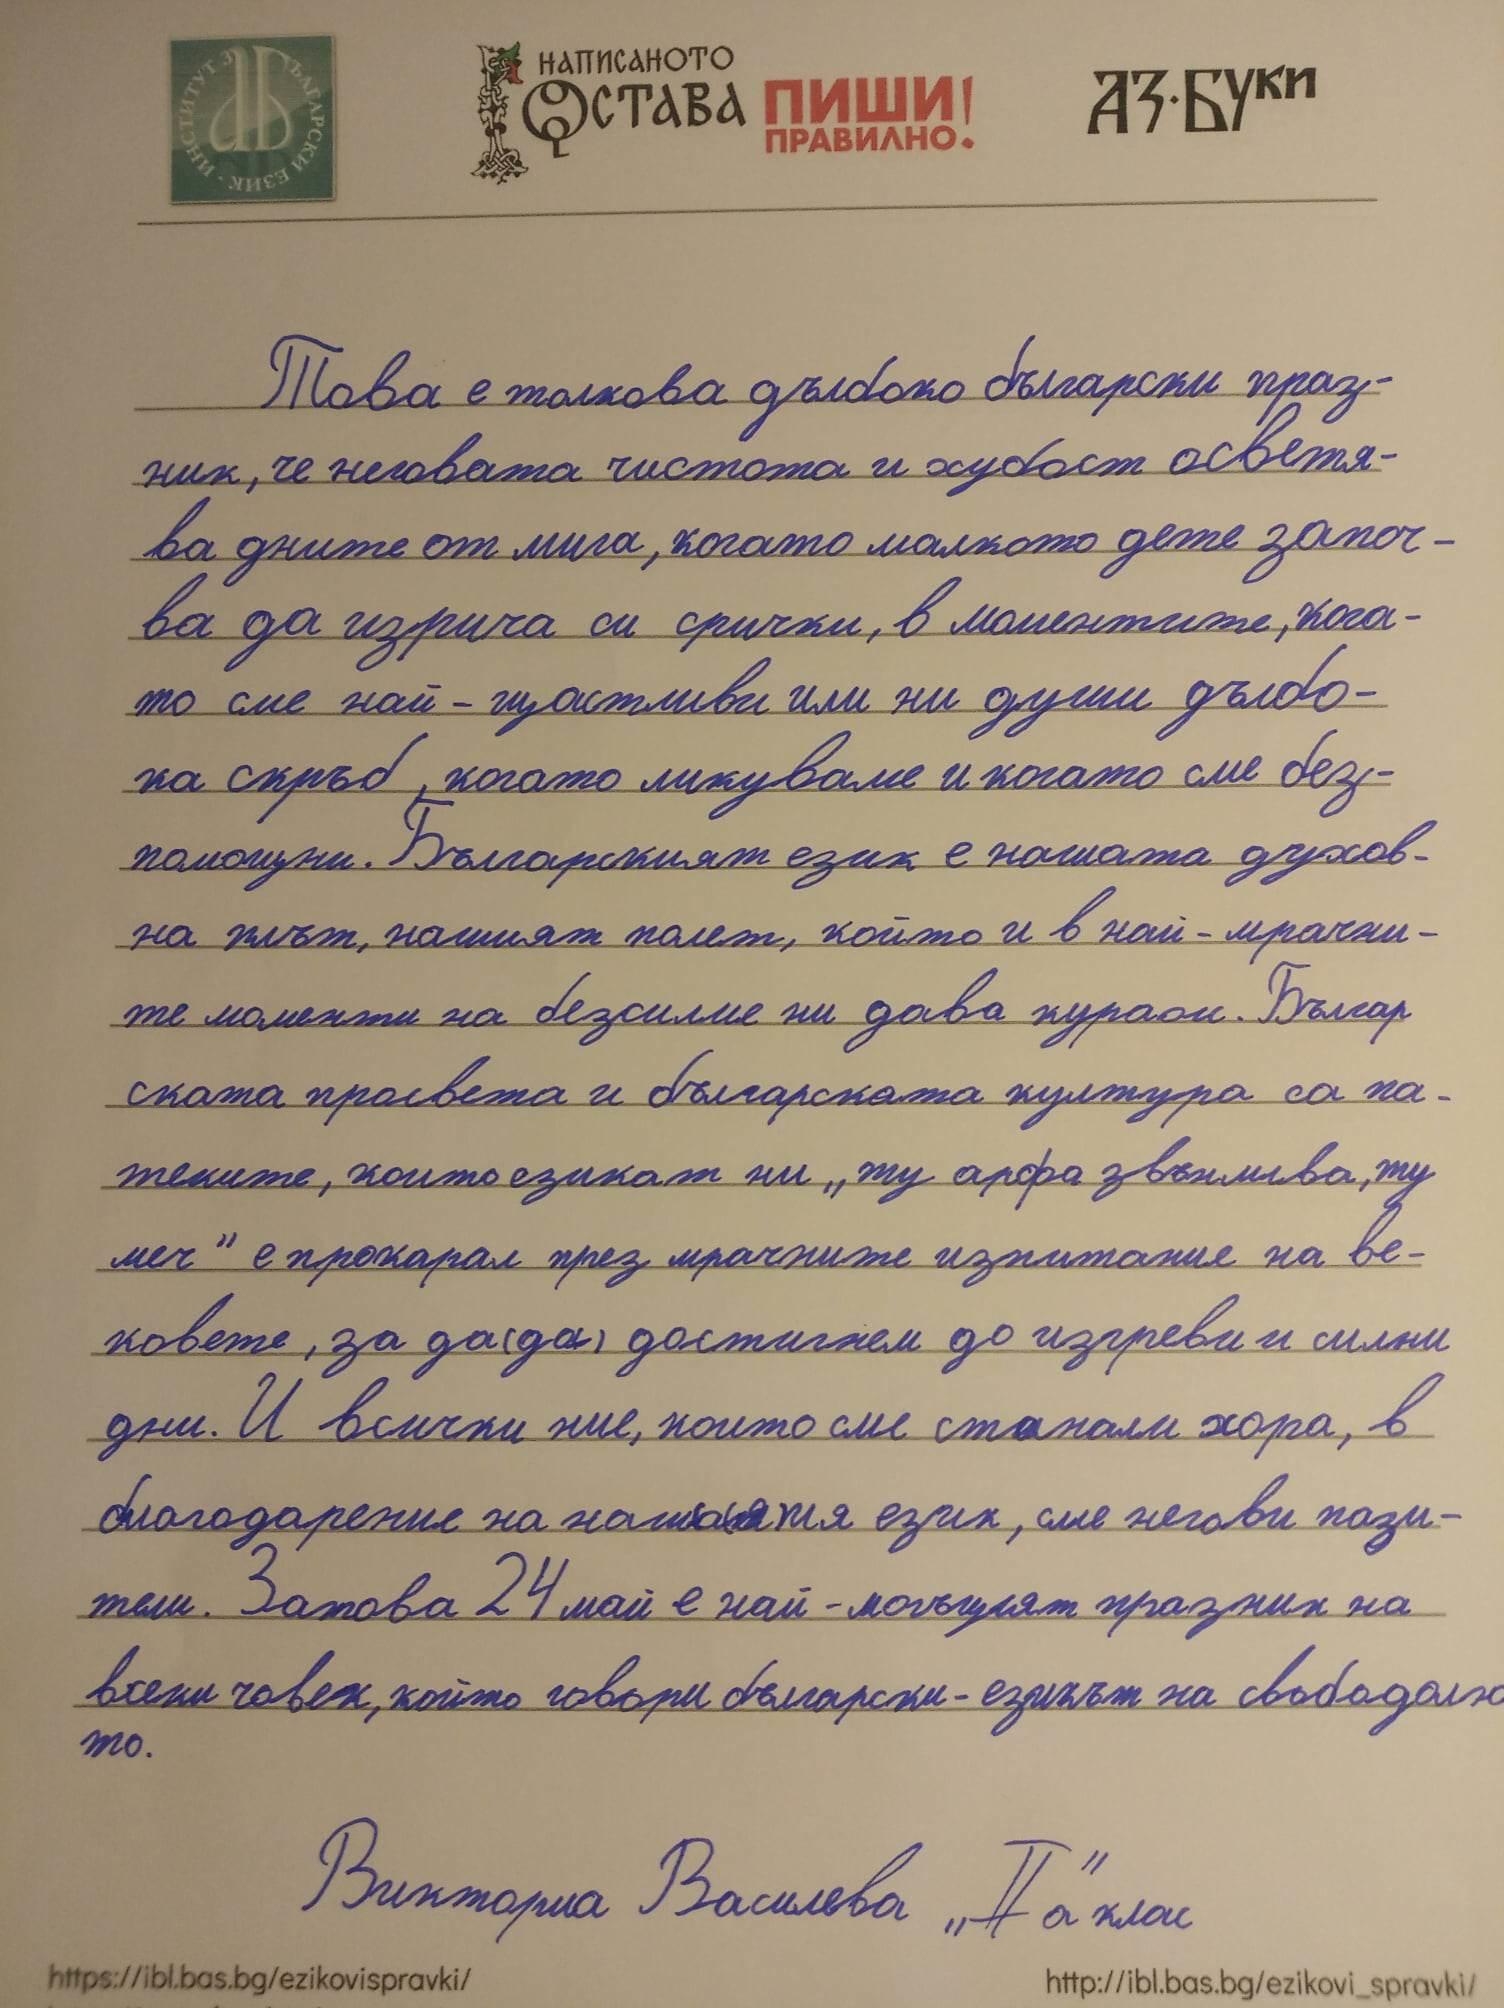 ИНСТИТУТ ЗА БЪЛГАРСКИ ЕЗИК
НАПИСАНОТО
ОСТАВА
ПИШИ
ПРАВИЛНО!
АЗ·БУКИ
Това е толкова дълбоко български праз-
ник, че неговата чистота и хубост осветя-
ва дните от мига, когато малкото дете започ-
ва да изрича си срички, в моментите, кога-
то сме най-щастливи или ни души дълбо-
ка скръб, когато ликуваме и когато сме без-
помощни. Българският език е нашата духов-
на плът, нашият полет, който и в най-мрачни-
те моменти на безсилие ни дава кураж. Българ
ската просвета и българската култура са па-
теките, които езикът ни „ту арфа звънлива, ту
меч" е прокарал през мрачните изпитание на ве-
ковете, за да (да) достигнем до изгреви и силни
дни. И всички ние, които сме станали хора, в
благодарение на език, сме негови пази-
тели. Затова 24 май е най-могъщият празник на
всеки човек, който говори български-езикът на
то.
Виктория Василева „II а" клас
https://ibl.bas.bg/ezikovispravki/
http://ibl.bas.bg/ezikovi_spravki/